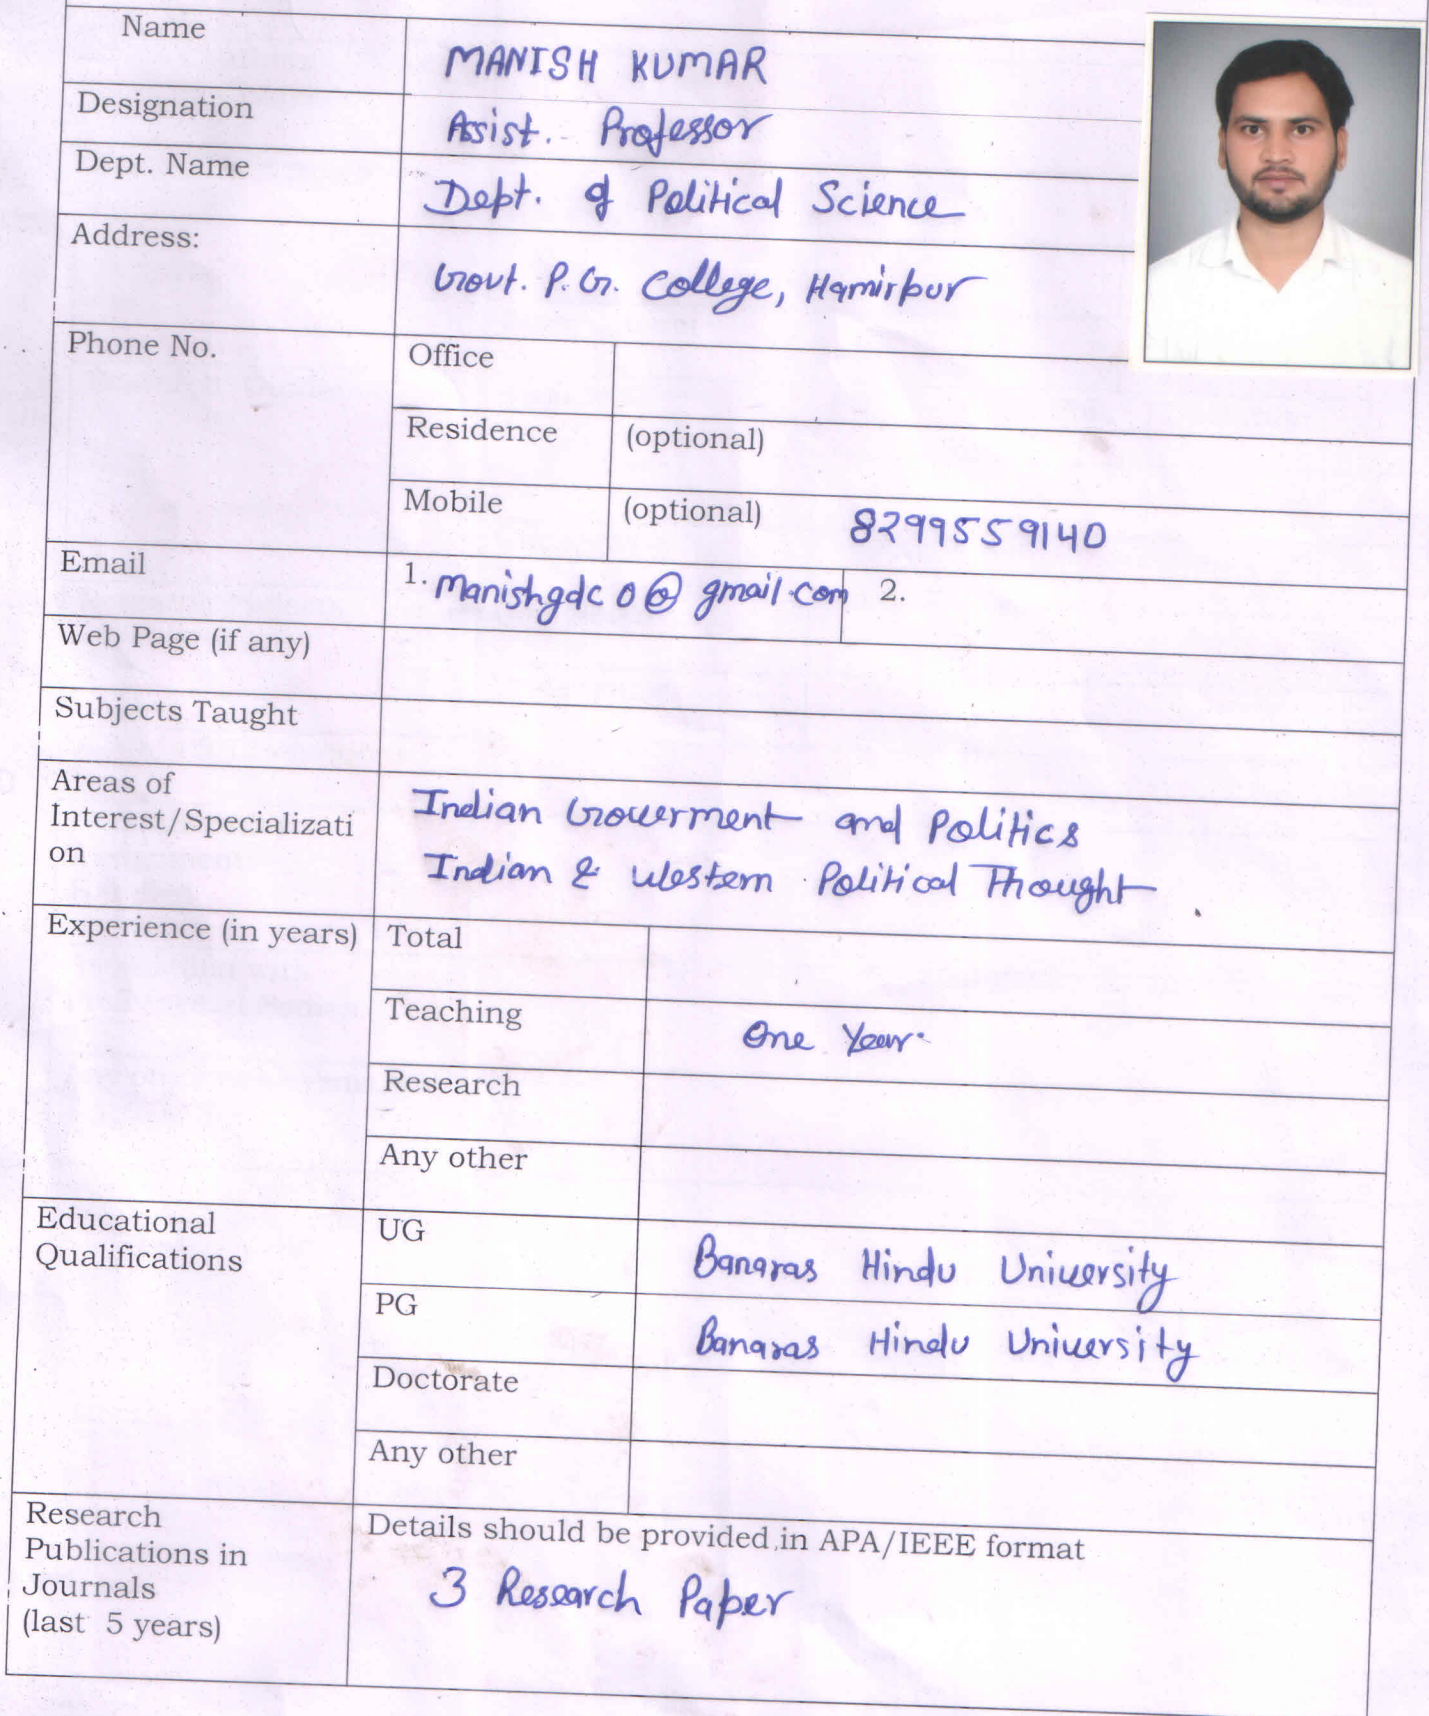 Name
MANISH KUMAR
Designation
Assist. Professor
Dept. Name
Dept. of Political Science
Address:
Govt. P.G. College, Hamirpur
Phone No.
Office
Residence (optional)
Mobile (optional) 8299559140
Email
1. Manishgdc0@gmail.com 2.
Web Page (if any)
Subjects Taught
Areas of
Interest/Specializati
on
Indian Goverment and Politics
Indian & Western Political Thought
Experience (in years)
Total
Teaching One Year.
Research
Any other
Educational
Qualifications
UG Banaras Hindu University
PG Banaras Hindu University
Doctorate
Any other
Research
Publications in
Journals
(last 5 years)
Details should be provided in APA/IEEE format
3 Research Paper